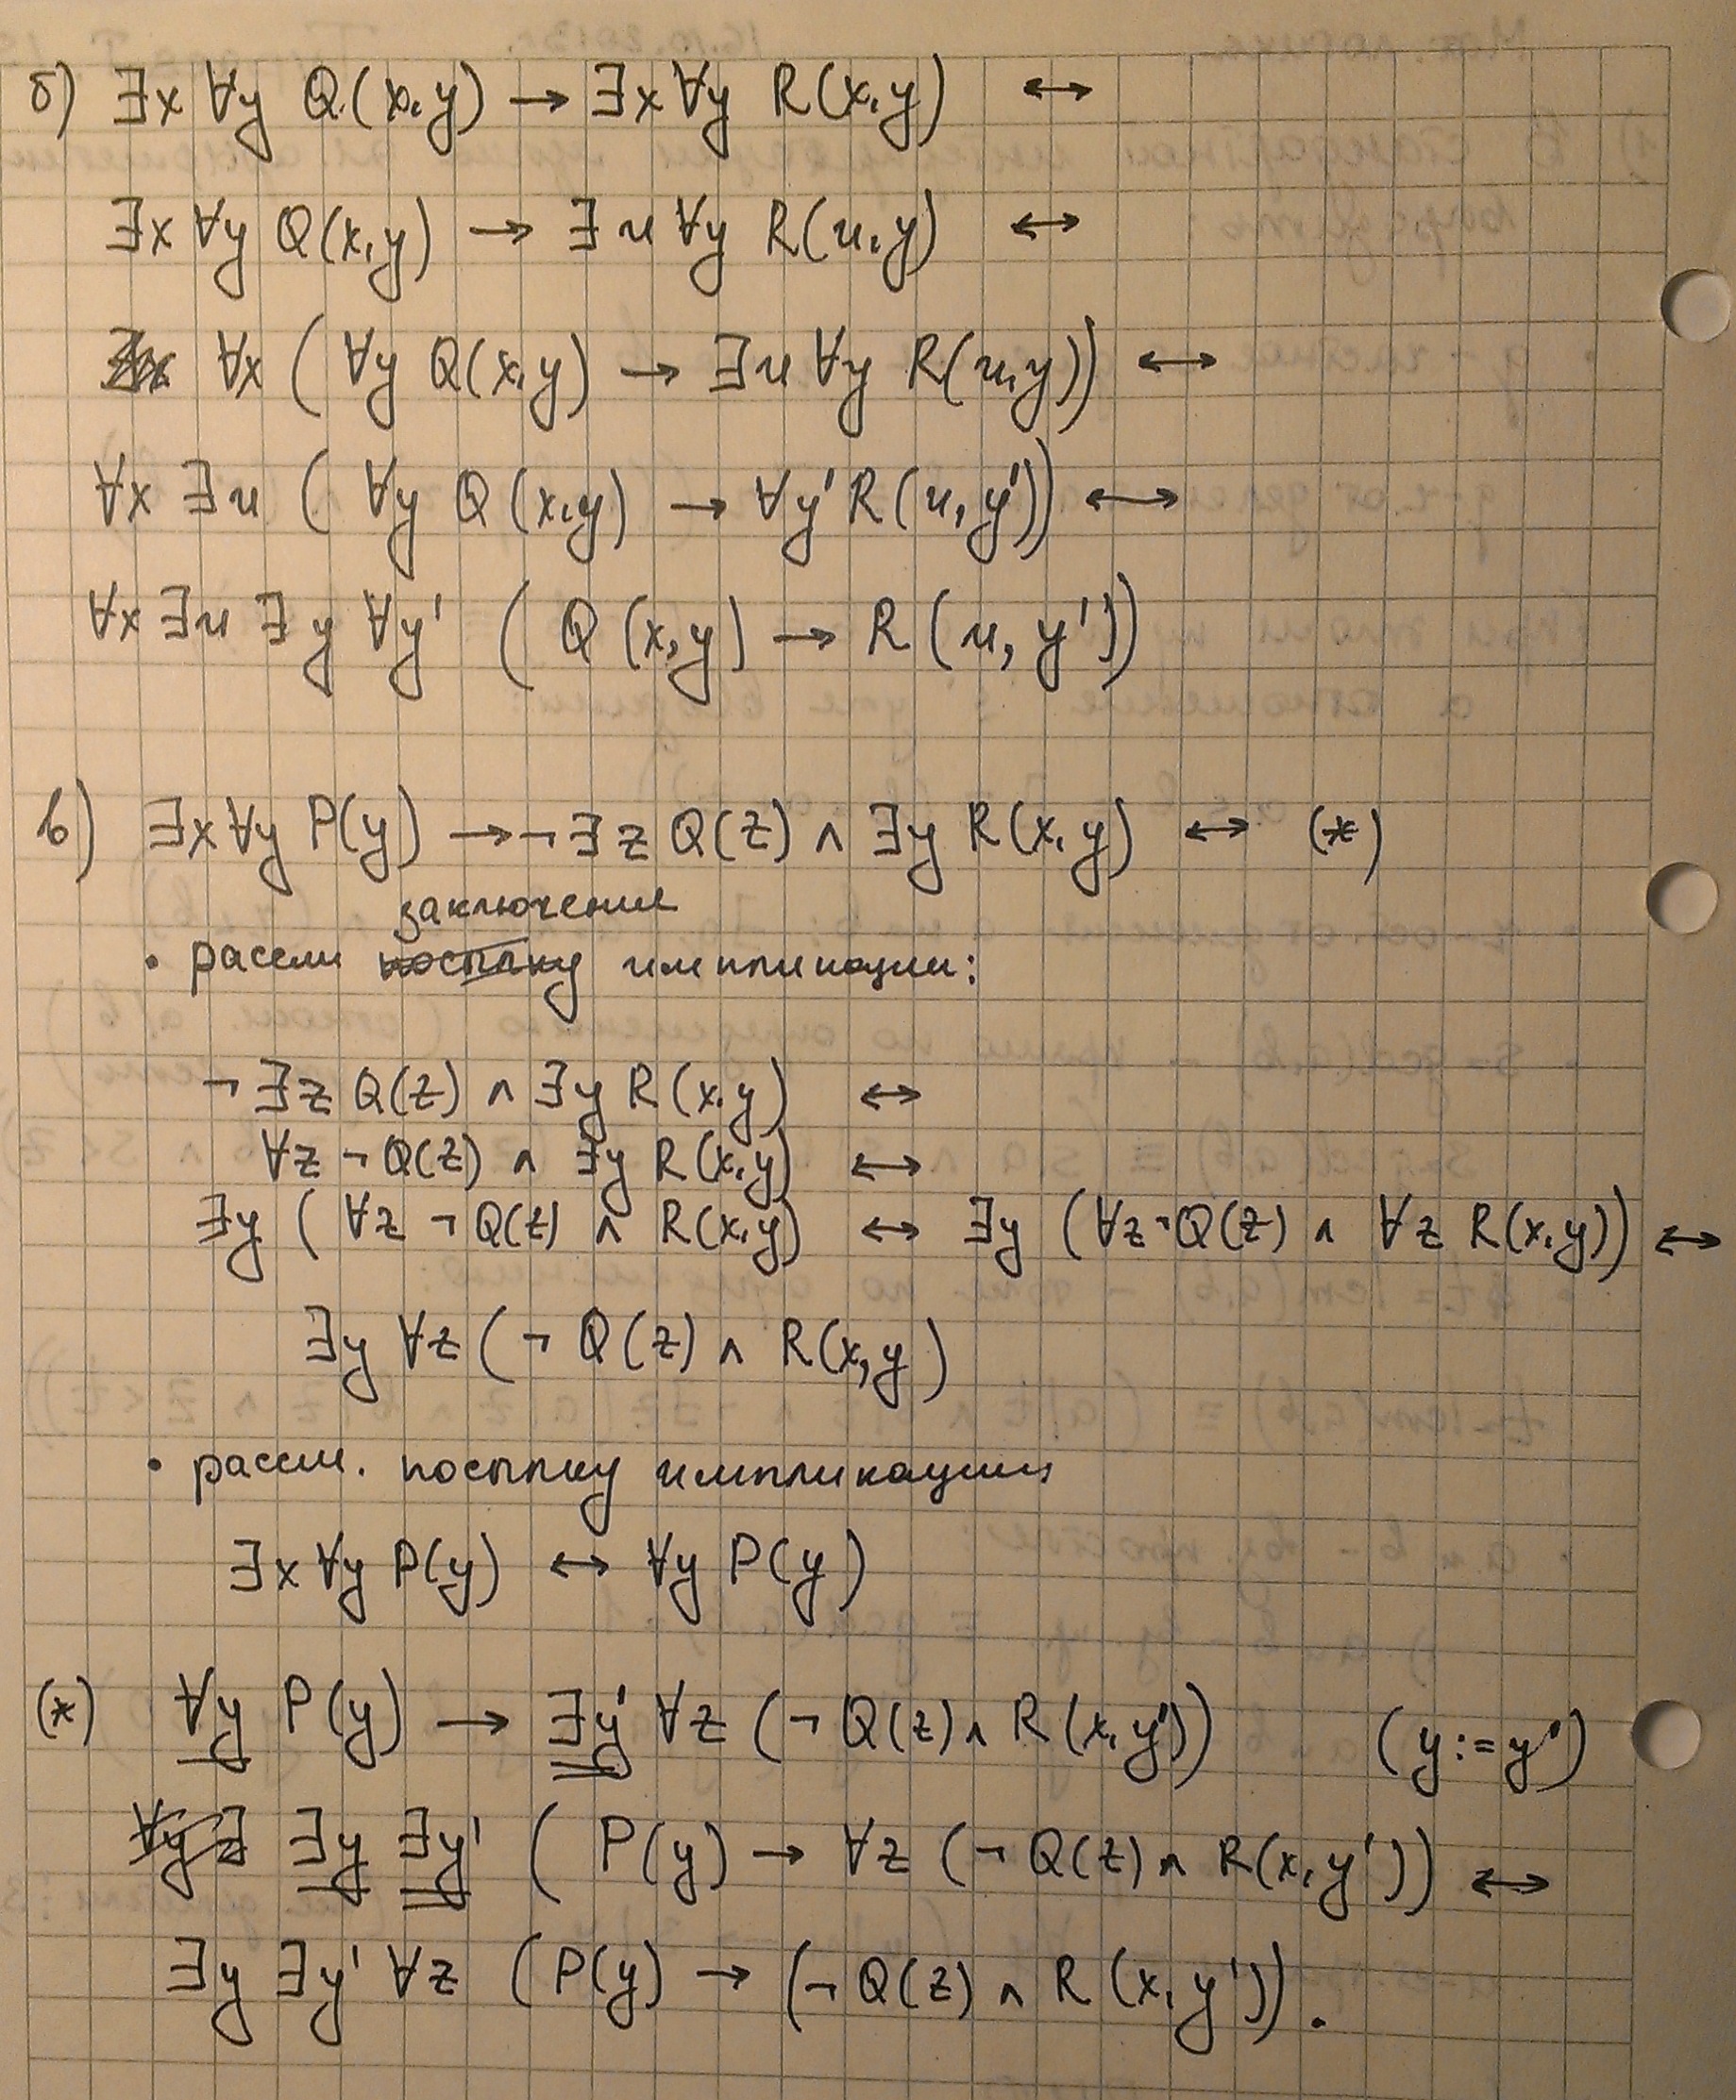 б) ∃x ∀y Q(x,y) → ∃x ∀y R(x,y) ↔
∃x ∀y Q(x,y) → ∃u ∀y R(u,y) ↔
∀x ( ∀y Q(x,y) → ∃u ∀y R(u,y)) ↔
∀x ∃u ( ∀y Q(x,y) → ∀y' R(u,y')) ↔
∀x ∃u ∃y ∀y' ( Q(x,y) → R(u,y'))
в) ∃x ∀y P(y) → ¬∃z Q(z) ∧ ∃y R(x,y) ↔ (*)
заключение
• рассм посылку импликации:
¬∃z Q(z) ∧ ∃y R(x,y) ↔
∀z ¬Q(z) ∧ ∃y R(x,y) ↔
∃y ( ∀z ¬Q(z) ∧ R(x,y) ↔ ∃y (∀z ¬Q(z) ∧ ∀z R(x,y)) ↔
∃y ∀z (¬ Q(z) ∧ R(x,y)
• рассм. посылку импликации
∃x ∀y P(y) ↔ ∀y P(y)
(*) ∀y P(y) → ∃y' ∀z (¬ Q(z) ∧ R(x,y')) (y:=y')
∃y ∃y' ( P(y) → ∀z (¬ Q(z) ∧ R(x,y')) ↔
∃y ∃y' ∀z (P(y) → (¬ Q(z) ∧ R(x,y')).